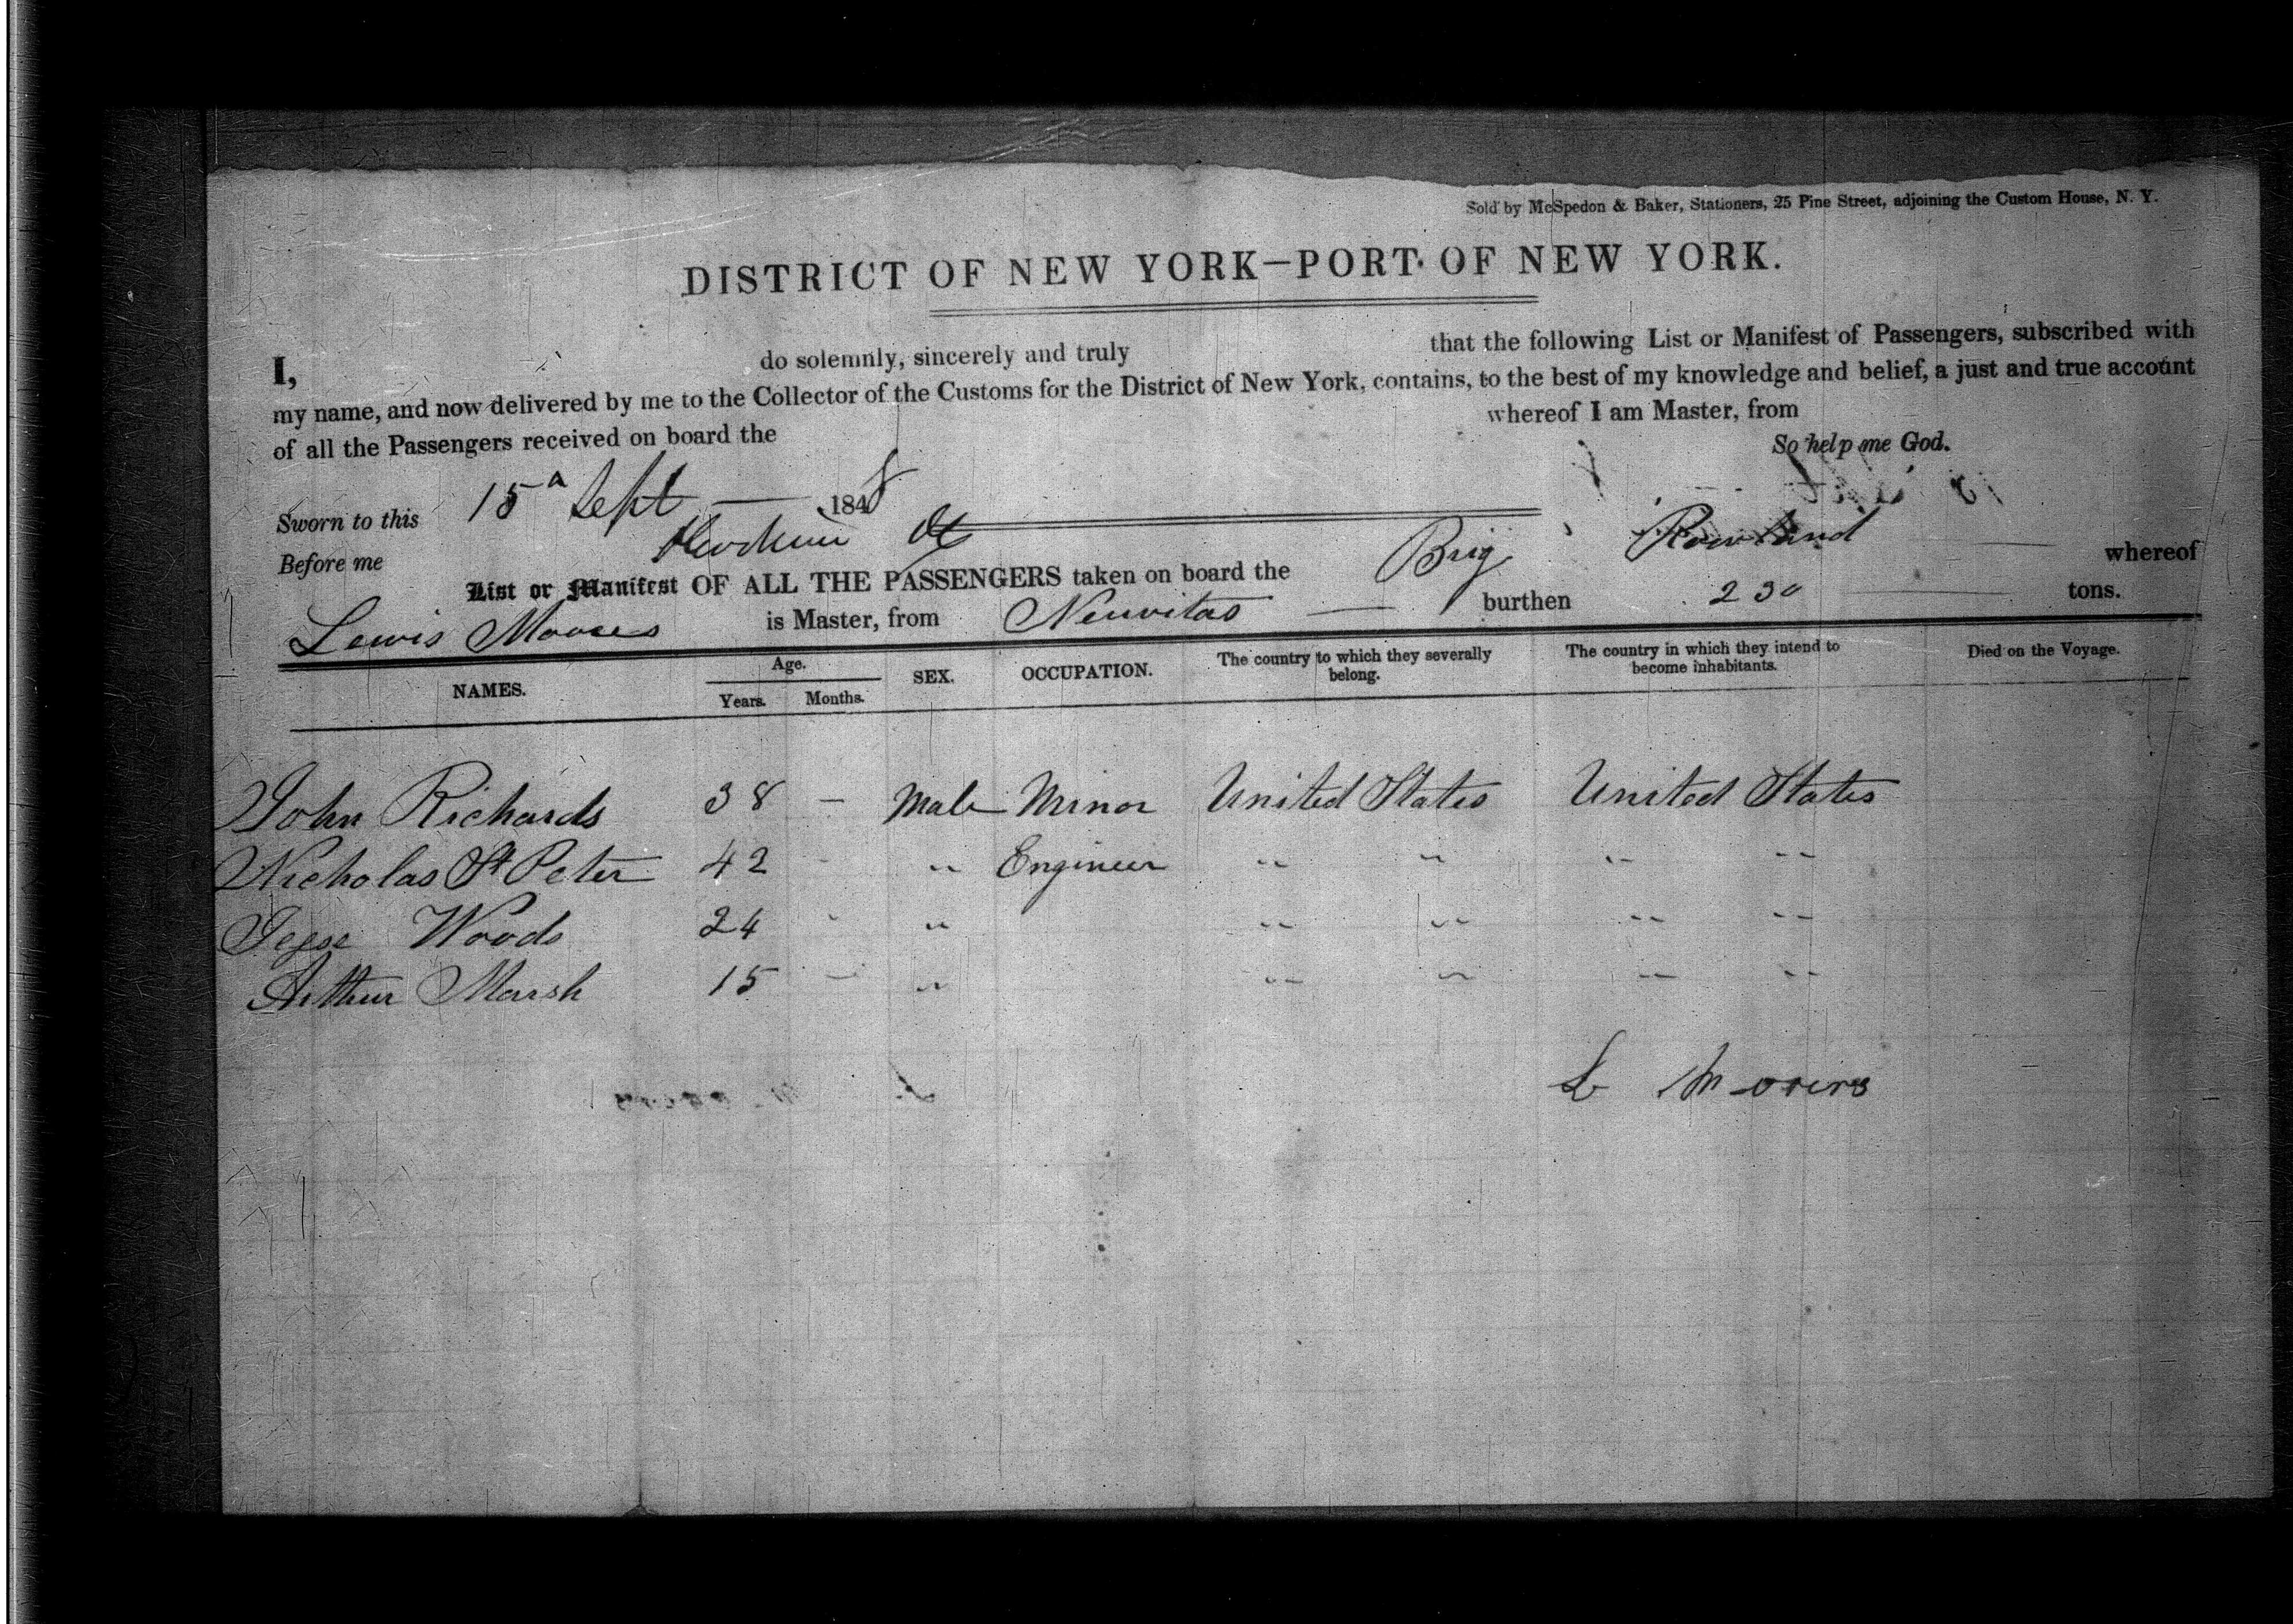 Sold by McSpedon & Baker, Stationers, 25 Pine Street, adjoining the Custom House, N. Y.
DISTRICT OF NEW YORK—PORT OF NEW YORK.
I, do solemnly, sincerely and truly that the following List or Manifest of Passengers, subscribed with
my name, and now delivered by me to the Collector of the Customs for the District of New York, contains, to the best of my knowledge and belief, a just and true account
of all the Passengers received on board the whereof I am Master, from
So help me God.
Sworn to this 15 Sept 1848
Before me
List or Manifest OF ALL THE PASSENGERS taken on board the Brig Rowland whereof
Lewis is Master, from Neuvitas burthen 230 tons.
NAMES. Age. SEX. OCCUPATION. The country to which they severally belong. The country in which they intend to become inhabitants. Died on the Voyage.
Years. Months.
John Richards 38 — Male Minor United States United States
Nicholas St Peter 42 - " Engineer " " " "
Jesse Woods 24 - " " " " "
Arthur Marsh 15 — " " " " "
L